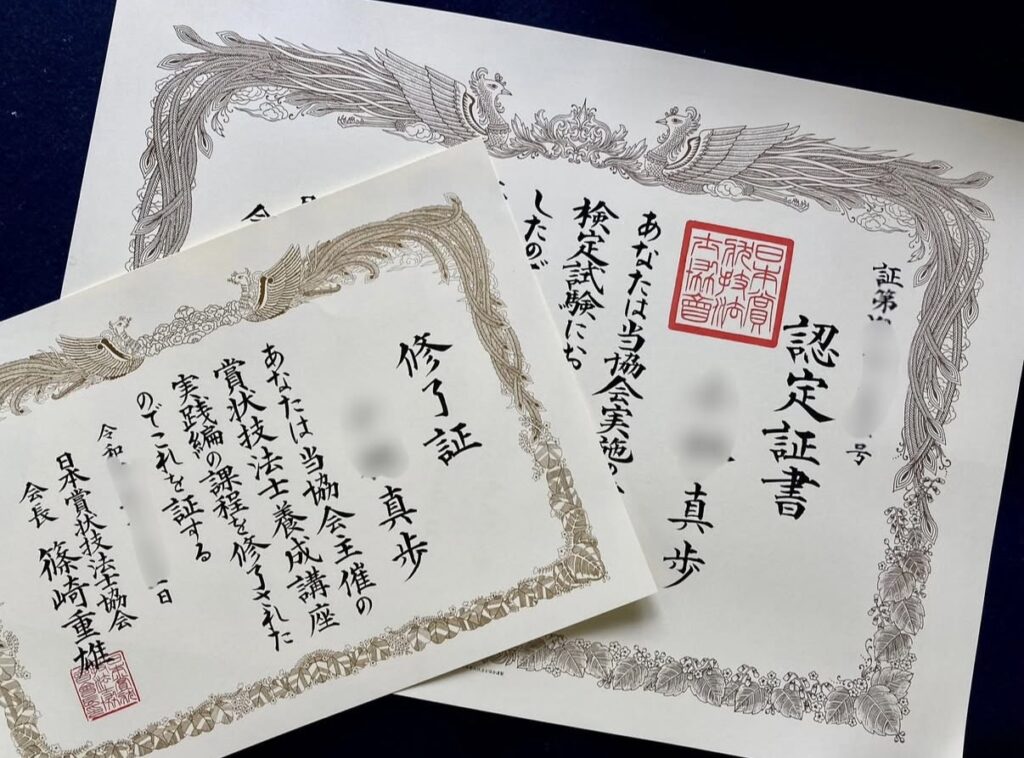 修了証
真歩
あなたは当協会主催の
賞状技法士養成講座
実践編の課程を修了された
のでこれを証する
令和
日
日本賞状技法士協会
会長 篠崎重雄
証第
号
認定証書
真歩
あなたは当協会実施の
検定試験にお
したので
日本賞状技法士協会